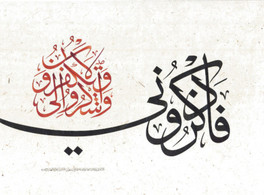 فاذكروني
أذكركم واشكروا لي ولا تكفرون